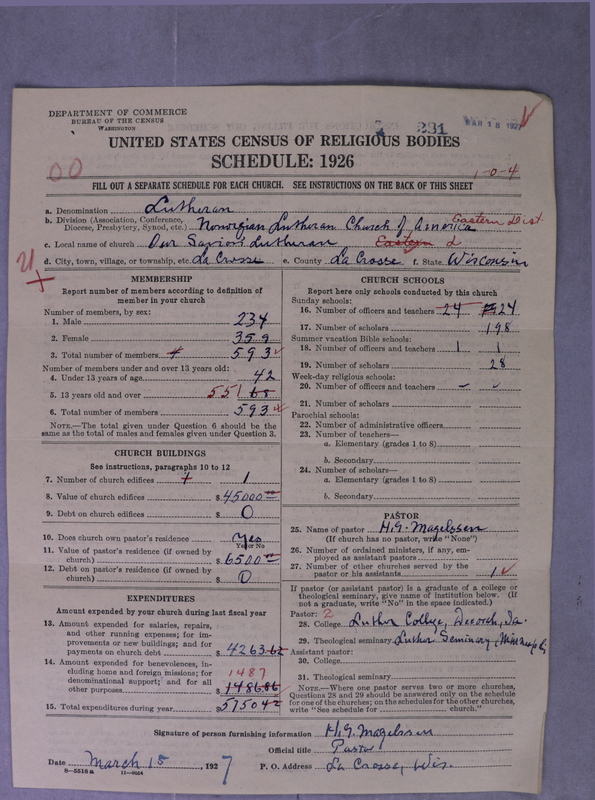 DEPARTMENT OF COMMERCE
BUREAU OF THE CENSUS
WASHINGTON
231
MAR 18 1927
UNITED STATES CENSUS OF RELIGIOUS BODIES
SCHEDULE: 1926
00
1-0-4
FILL OUT A SEPARATE SCHEDULE FOR EACH CHURCH. SEE INSTRUCTIONS ON THE BACK OF THIS SHEET
a. Denomination Lutheran
b. Division (Association, Conference, Diocese, Presbytery, Synod, etc.) Norwegian Lutheran Church of America Eastern Dist.
c. Local name of church Our Saviors Lutheran Eastern D
d. City, town, village, or township, etc. La Crosse e. County La Crosse f. State Wisconsin
MEMBERSHIP
Report number of members according to definition of
member in your church
Number of members, by sex:
1. Male 234
2. Female 359
3. Total number of members 593
Number of members under and over 13 years old:
4. Under 13 years of age 42
5. 13 years old and over 551
6. Total number of members 593
NOTE.—The total given under Question 6 should be the
same as the total of males and females given under Question 3.
CHURCH BUILDINGS
See instructions, paragraphs 10 to 12
7. Number of church edifices 1
8. Value of church edifices $ 45000
9. Debt on church edifices $ 0
10. Does church own pastor's residence Yes
Yes or No
11. Value of pastor's residence (if owned by
church) $ 6500
12. Debt on pastor's residence (if owned by
church) $ 0
EXPENDITURES
Amount expended by your church during last fiscal year
13. Amount expended for salaries, repairs,
and other running expenses; for im-
provements or new buildings; and for
payments on church debt $ 4263.62
14. Amount expended for benevolences, in-
cluding home and foreign missions; for
denominational support; and for all
other purposes $ 1486.86
1487
15. Total expenditures during year $ 5750.42
CHURCH SCHOOLS
Report here only schools conducted by this church
Sunday schools:
16. Number of officers and teachers 24 24
17. Number of scholars 198
Summer vacation Bible schools:
18. Number of officers and teachers 1 1
19. Number of scholars 28
Week-day religious schools:
20. Number of officers and teachers
21. Number of scholars
Parochial schools:
22. Number of administrative officers
23. Number of teachers—
a. Elementary (grades 1 to 8)
b. Secondary
24. Number of scholars—
a. Elementary (grades 1 to 8)
b. Secondary
PASTOR
25. Name of pastor H. G. Magelssen
(If church has no pastor, write "None")
26. Number of ordained ministers, if any, em-
ployed as assistant pastors
27. Number of other churches served by the
pastor or his assistants 1
If pastor (or assistant pastor) is a graduate of a college or
theological seminary, give name of institution below. (If
not a graduate, write "No" in the space indicated.)
Pastor: 2
28. College Luther College, Decorah, Ia.
29. Theological seminary Luther Seminary, Minneapolis
Assistant pastor:
30. College
31. Theological seminary
NOTE.—Where one pastor serves two or more churches,
Questions 28 and 29 should be answered only on the schedule
for one of the churches; on the schedules for the other churches,
write "See schedule for church."
Signature of person furnishing information H. G. Magelssen
Official title Pastor
Date March 15, 1927 P. O. Address La Crosse, Wis.
8-5518 a 11-9564